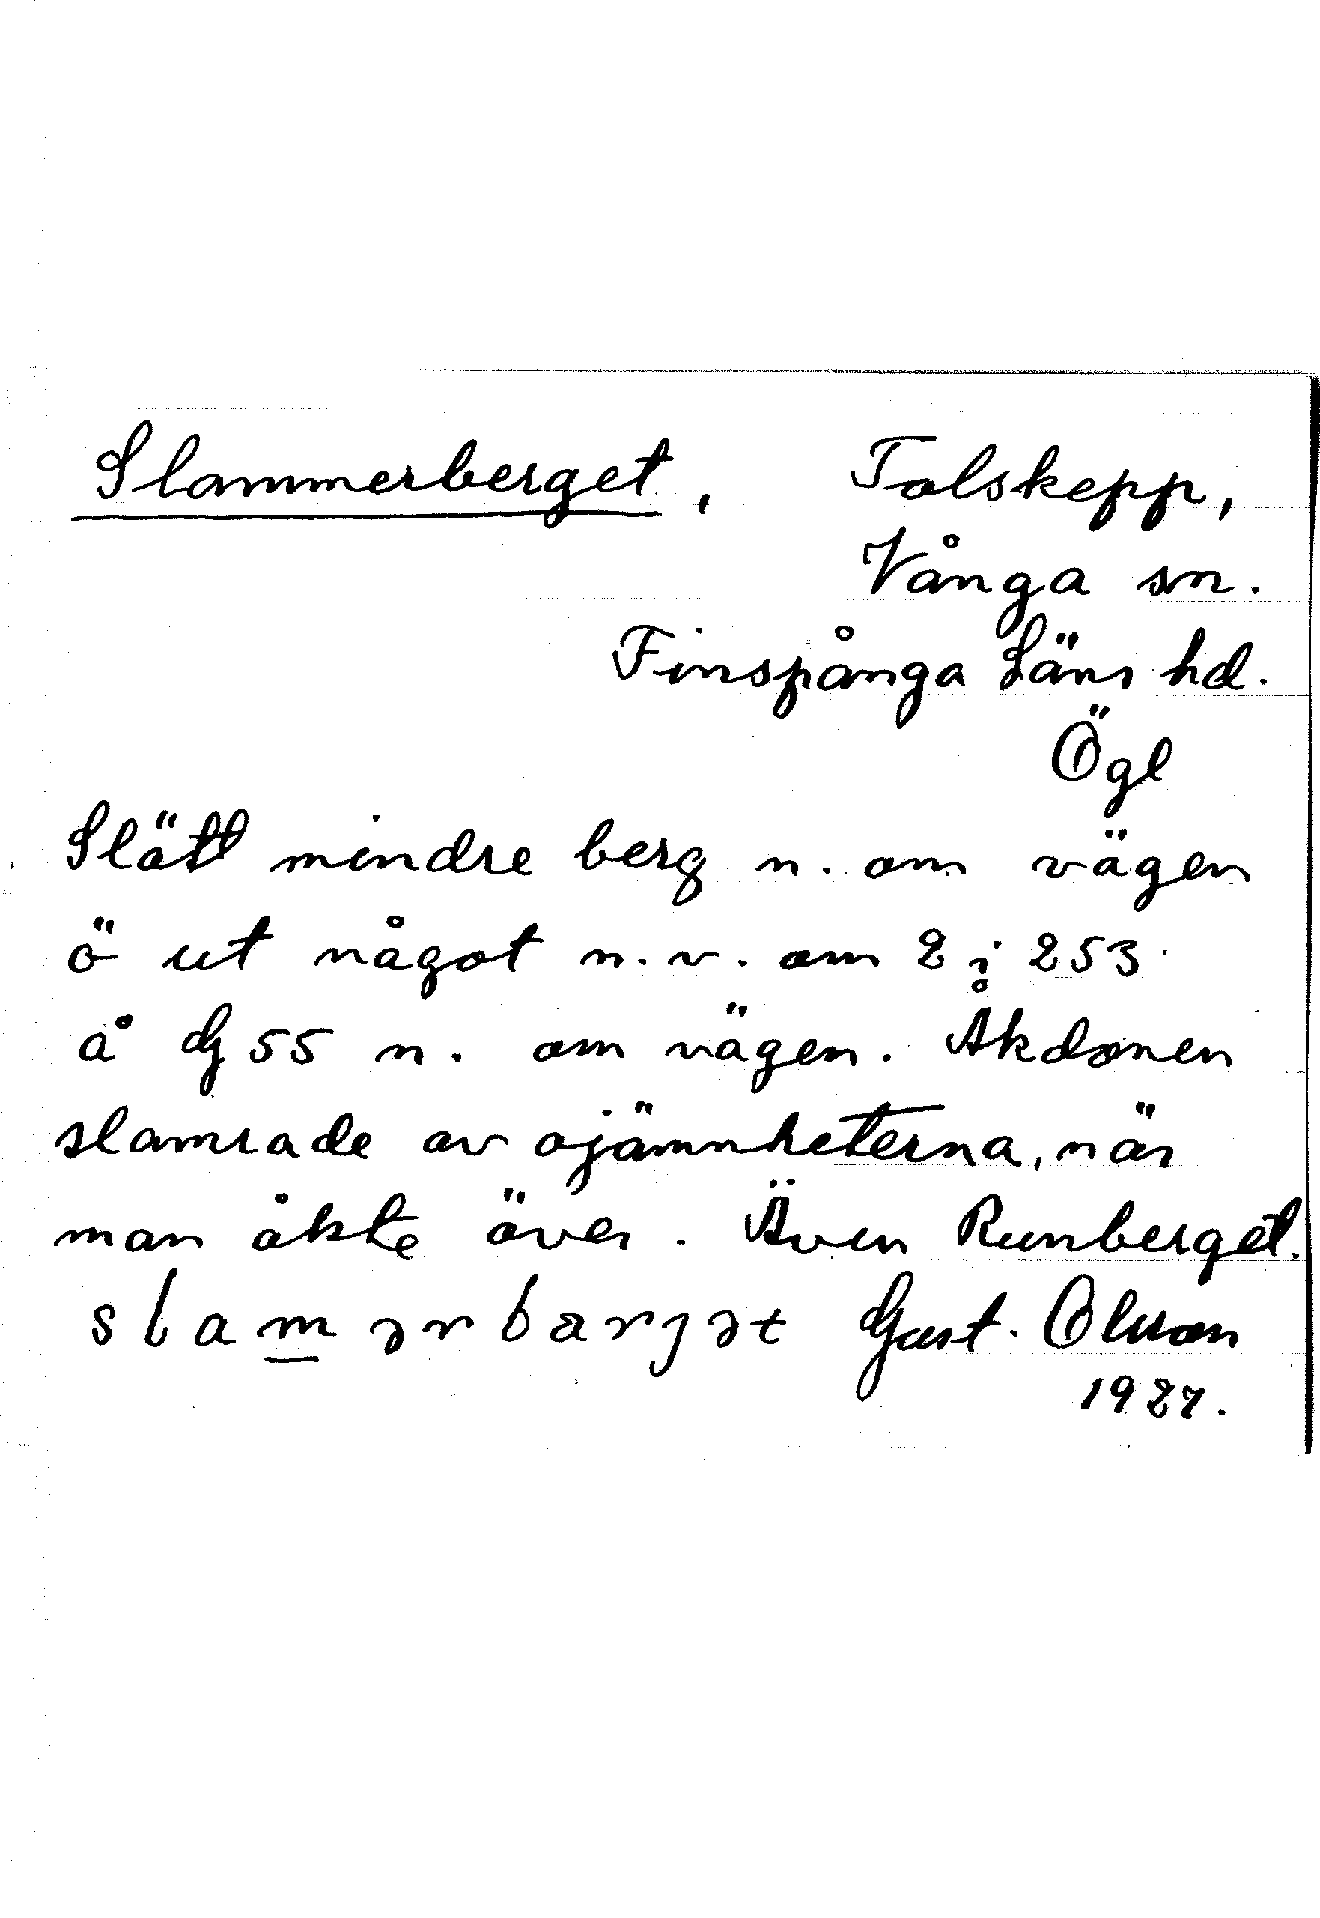 Slammerberget, Tolskepp,
Vånga sn.
Finspånga Läns hd.
Ögl
Slätt mindre berg n. om vägen
ö ut något n.v. om 2 i 253
å G 55 n. om vägen. Åkdonen
slamrade av ojämnheterna, när
man åkte över. Även Runberget.
slamərbærjət Gust. Olsson
1927.